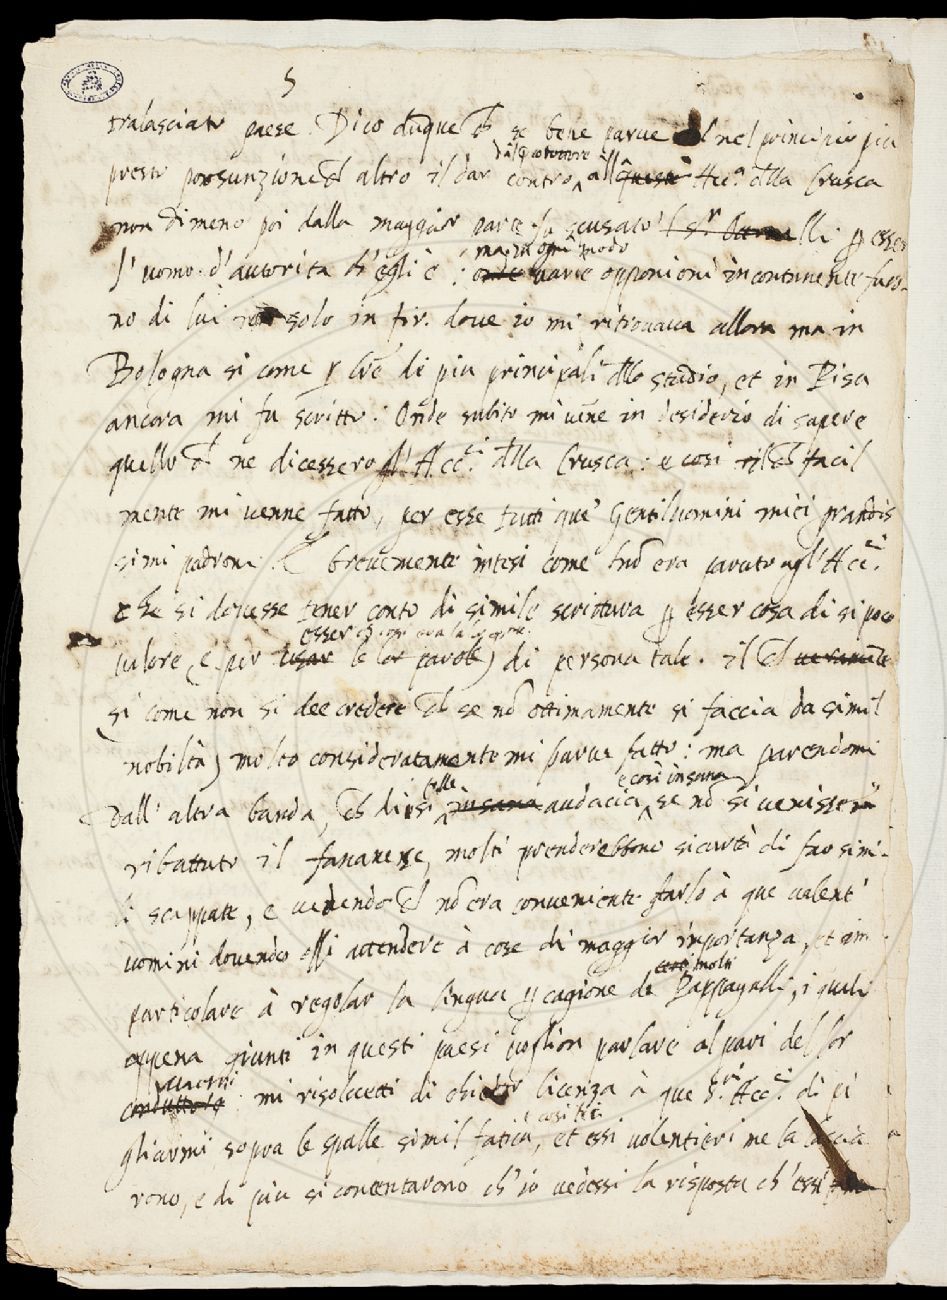 5
tralasciato paese. Dico dūque ch se bene parve nel principio piu
dal
presto prosunzione ch altro il dar contro all queste Acc.ⁱ dlla Crusca
non dimeno poi dalla maggior parte fu scusato lli ꝑ esser
ma in ogni modo
l'uomo d'autorita ch'egli è : onde varie opponioni incontanente furo-
no di lui non solo in fir. dove io mi ritrovava allora ma in
Bologna si come ꝑ lrē di piu principali dllo studio, et in Pisa
ancora mi fu scritto: Onde subito mi vēne in desiderio di sapere
quello ch ne dicessero gl'Acc.ⁱ dlla Crusca: e cosi il ch facil
mente mi venne fatto, per esse tutti que' Gentiluomini miei grandis
simi padroni. E brevemente intesi come nō era paruto agl'Acc.ⁱ
che si dovesse tener conto di simile scrittura ꝑ esser cosa di si poco
esser
valore (e per usar le lor parole) di persona tale. il ch veramēte
si come non si dee credere ch se nō ottimamente si faccia da simil
nobiltà) molto consideratamente mi parve fatto: ma parendomi
folle e così insana
Dall'altra banda, ch di si insana audacia se nō si venisse
ributtato il , molti prenderebbono sicurtà di far simi-
li scappate, e vedendo ch nō era conveniente farlo à que valent'
uomini dovendo essi attendere à cose di maggior importanza, et in
certi molti
particolare à regolar la lingua ꝑ cagione de Pappagalli, i quali
appena giunti in questi paesi voglion parlare al pari del lor
mi risolvetti di chieder licenza à que S.ʳⁱ Acc.ⁱ di pi
e cosi
gliarmi sopra le spalle simil fatica, et essi volentieri me la lascia
rono, e di piu si contentarono ch'io vedessi la risposta ch'essi